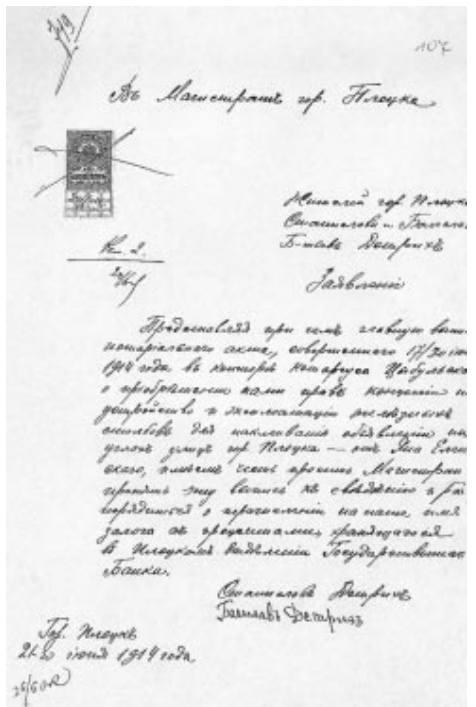 319
107
Въ Магистратъ гор. Плоцка
Жителей гор. Плоцка
Станислава и Болеслава
Детрихъ
Заявленіе
Представляя при семъ главную
нотаріального акта, совершеннаго 17/30
1914 года въ конторѣ нотаріуса
о пріобрѣтеніи нами правъ концессіи на
устройство и эксплоатацію
столбовъ для наклеиванія объявленій на
углахъ улицъ гор. Плоцка — отъ Яна
скаго, имѣемъ честь просить Магистратъ
принять эту выпись къ свѣдѣнію и рас
порядиться о перечисленіи на наше имя
залога съ процентами, хранящагося
въ Плоцкомъ Отдѣленіи Государственнаго
Банка.
Станиславъ Детрихъ
Болеславъ Детрихъ
Гор. Плоцкъ
21-го іюня 1914 года